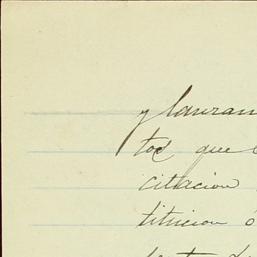 y lauran
tos que
citacion
titucion o